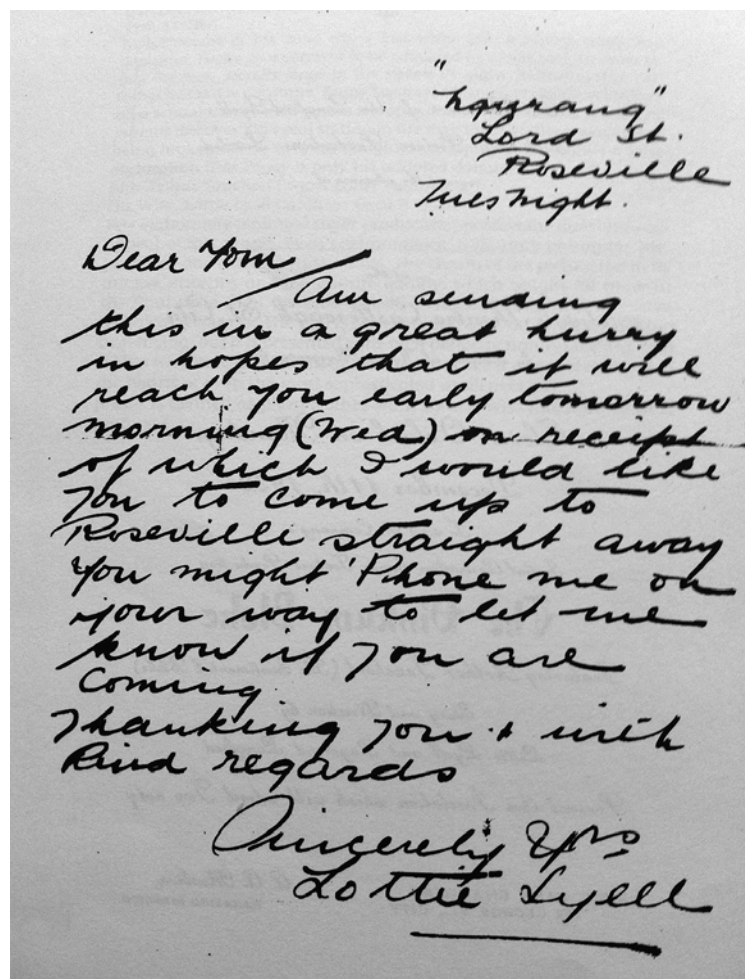 "
Lord St.
Roseville
Tues night.
Dear Tom
Am sending
this in a great hurry
in hopes that it will
reach you early tomorrow
morning (Wed) on receipt
of which I would like
you to come up to
Roseville straight away
You might 'Phone me on
your way to let me
know if you are
coming.
Thanking you & with
kind regards
Sincerely Yrs
Lottie Lyell